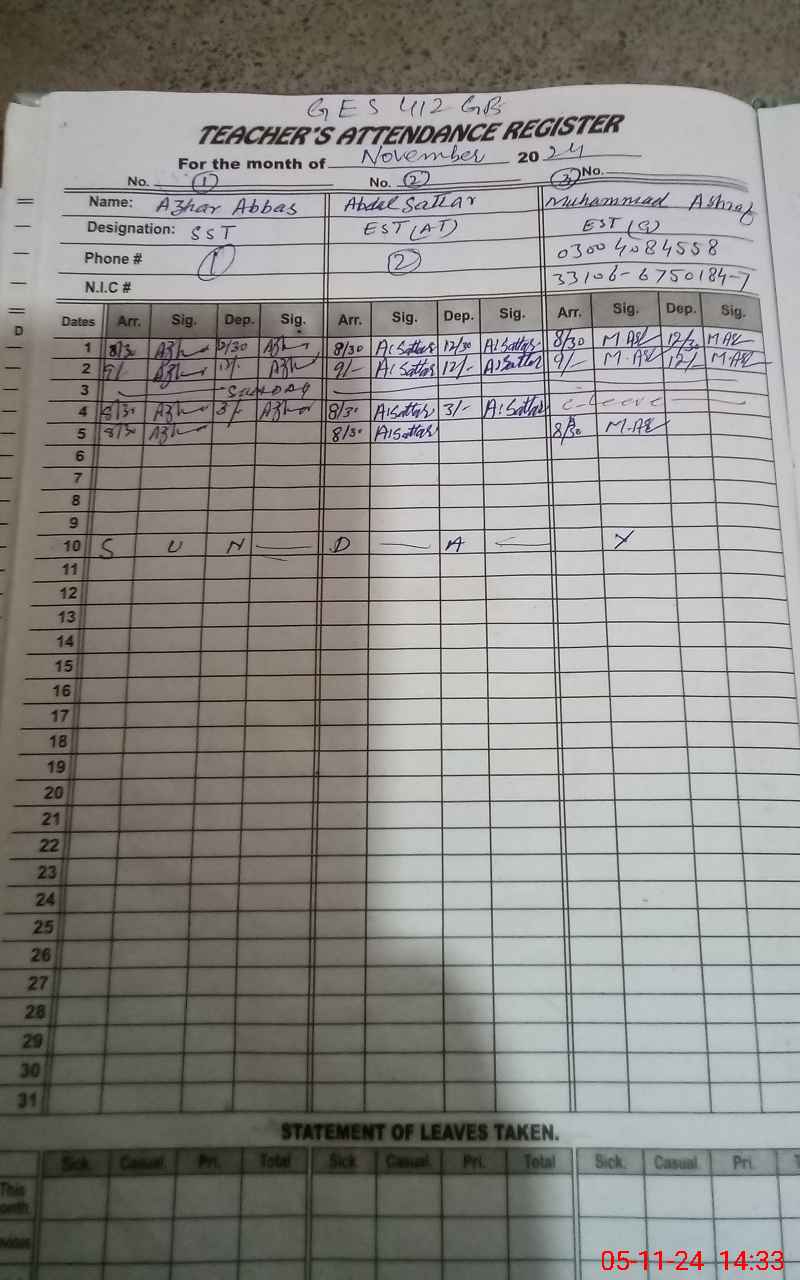 GES 412 GB
TEACHER'S ATTENDANCE REGISTER
For the month of November 2024
No. 1 No. 2 3 No.
Name: Azhar Abbas Abdul Sattar Muhammad Ashraf
Designation: SST EST (AT) EST (G)
Phone # 1 2 0300 4084558
N.I.C # 33106-6750184-7
Dates Arr. Sig. Dep. Sig. Arr. Sig. Dep. Sig. Arr. Sig. Dep. Sig.
D
1 8/30 Azhar 12/30 Azhar 8/30 A:Sattar 12/30 A:Sattar 8/30 12/30
2 9/- Azhar 12/- Azhar 9/- A:Sattar 12/- A:Sattar 9/- 12/-
3 SUNDAY
4 8/30 Azhar 3/- Azhar 8/30 A:Sattar 3/- A:Sattar c-leave
5 8/30 Azhar 8/30 A:Sattar 8/30
6
7
8
9
10 S U N D A Y
11
12
13
14
15
16
17
18
19
20
21
22
23
24
25
26
27
28
29
30
31
STATEMENT OF LEAVES TAKEN.
Sick. Casual. Pri. Total Sick. Casual. Pri. Total Sick. Casual. Pri.
This
05-11-24 14:33